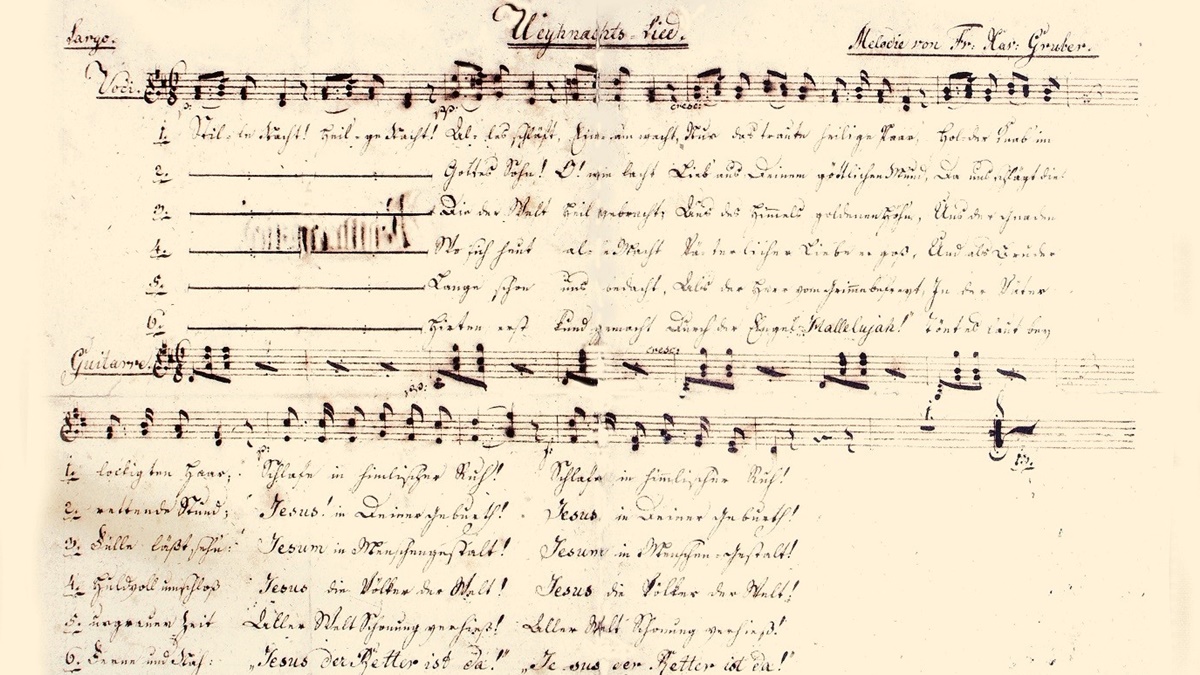 Weyhnachts-Lied.
Largo.
Melodie von Fr: Xav: Gruber.
Voci.
p.
pp.
cresc:
1. Stil-le Nacht! Heil-ge Nacht! Al-les schläft, Einsam wacht, Nur das traute heilige Paar, Holder Knab im
2. Gottes Sohn! O! wie lacht Lieb aus Deinem göttlichen Mund, Da uns schlägt die
3. Die der Welt Heil gebracht, Aus des Himels goldenen Höhn, Uns der Gnaden
4. Wo sich heut alle Macht Väterlicher Liebe ergoß, Und als Bruder
5. Lange schon uns bedacht, Als der Herr vom Grimme befreyt, In der Väter
6. Hirten erst kund gemacht Durch der Engel "Hallelujah!" Tönt es laut bey
Guitarre.
pp.
cresc:
p:
1. lockigten Haar; Schlafe in himlischer Ruh! Schlafe in himlischer Ruh!
2. rettende Stund; Jesus! in Deiner Geburth! Jesus in Deiner Geburth!
3. Fülle läßt sehn: Jesum in Menschengestalt! Jesum in Menschen-Gestalt!
4. Huldvoll umschloß Jesus die Völker der Welt! Jesus die Völker der Welt!
5. urgrauer Zeit Aller Welt Schonung verhieß! Aller Welt Schonung verhieß!
6. Ferne und Nah: "Jesus der Retter ist da!" "Jesus der Retter ist da!"